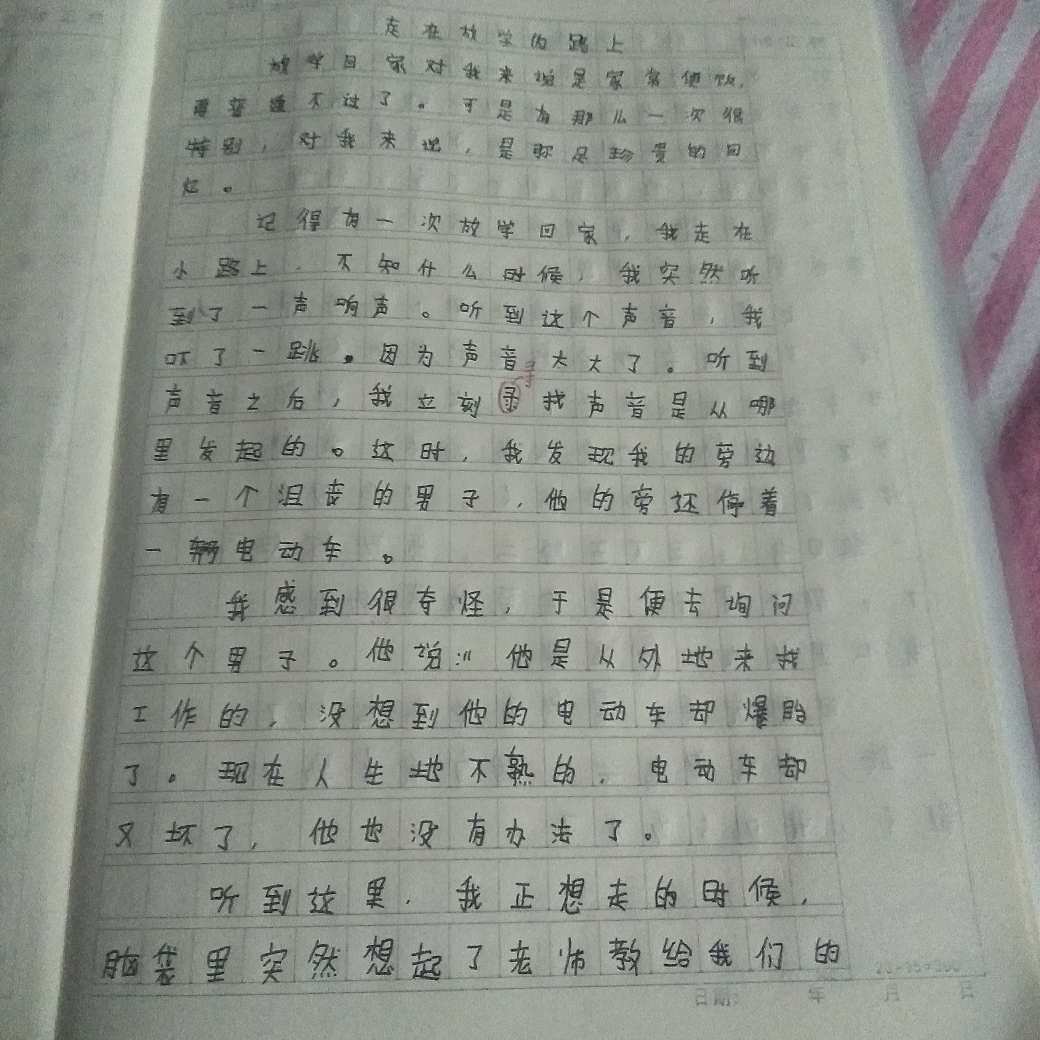 走在放学的路上
放学回家对我来说是家常便饭,
再普通不过了。可是有那么一次很
特别,对我来说,是弥足珍贵的回
忆。
记得有一次放学回家,我走在
小路上,不知什么时候,我突然听
到了一声响声。听到这个声音,我
吓了一跳。因为声音太大了。听到
寻
声音之后,我立刻寻找声音是从哪
里发起的。这时,我发现我的旁边
有一个沮丧的男子,他的旁还停着
一辆电动车。
我感到很奇怪,于是便去询问
这个男子。他说:“他是从外地来找
工作的,没想到他的电动车却爆胎
了。现在人生地不熟的,电动车却
又坏了,他也没有办法了。
听到这里,我正想走的时候,
脑袋里突然想起了老师教给我们的
日期: 年 月 日